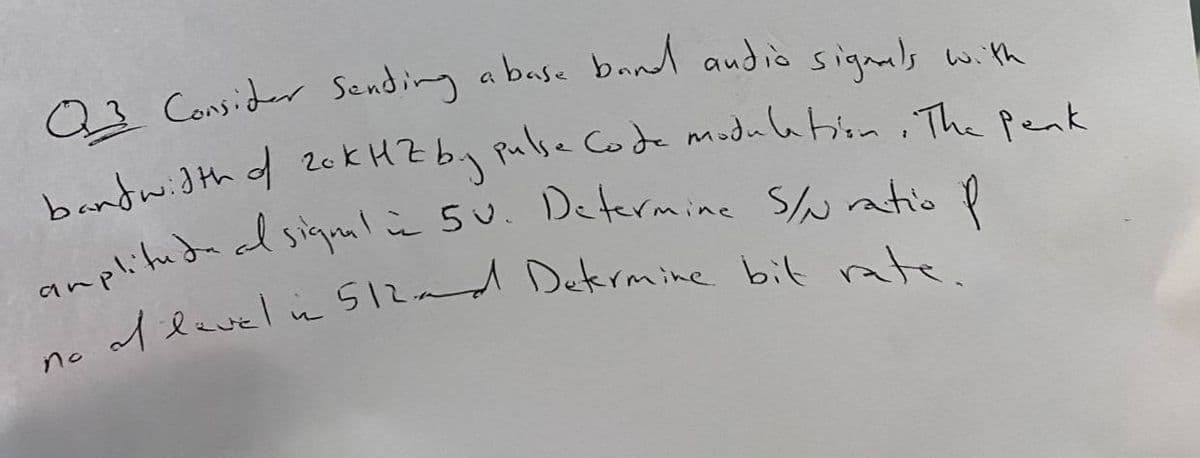 Q3 Consider Sending a base band audio signals with
bandwidth of 20KHZ by pulse Code modulation. The peak
amplitude of signal is 5V. Determine S/N ratio if
no of level is 512 and Determine bit rate.